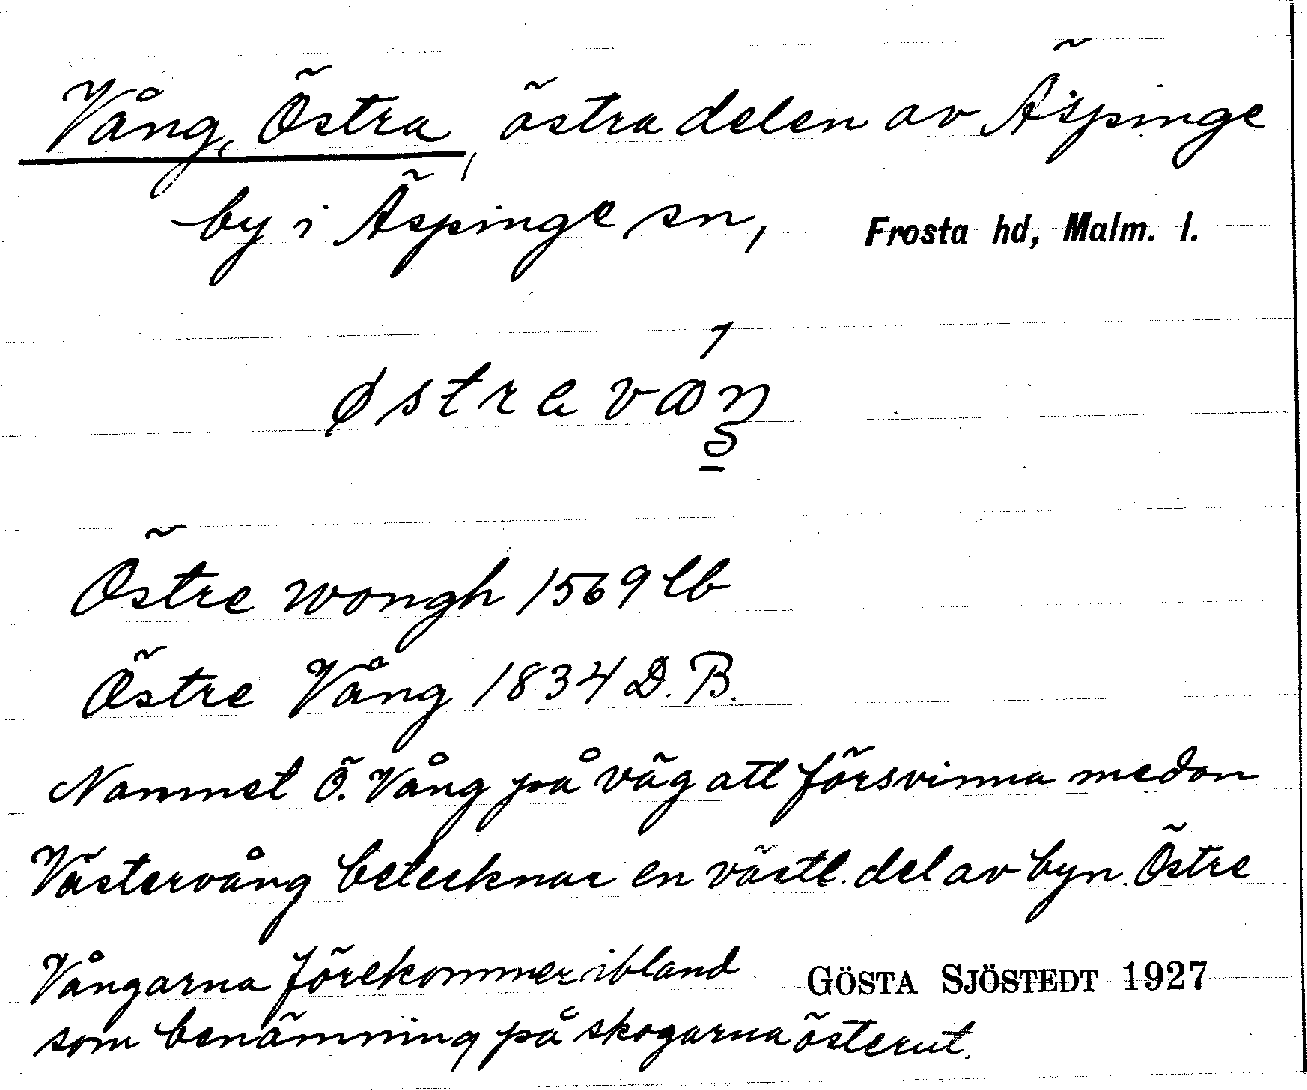 Vång, Östra, östra delen av Äspinge
by i Äspinge sn, Frosta hd, Malm. l.
Östre wongh 1569 lb
Östre Vång 1834 D.B.
Namnet Ö. Vång på väg att försvinna medan
Västervång betecknar en västl. del av byn. Östre
Vångarna förekommer ibland GÖSTA SJÖSTEDT 1927
som benämning på skogarna österut.